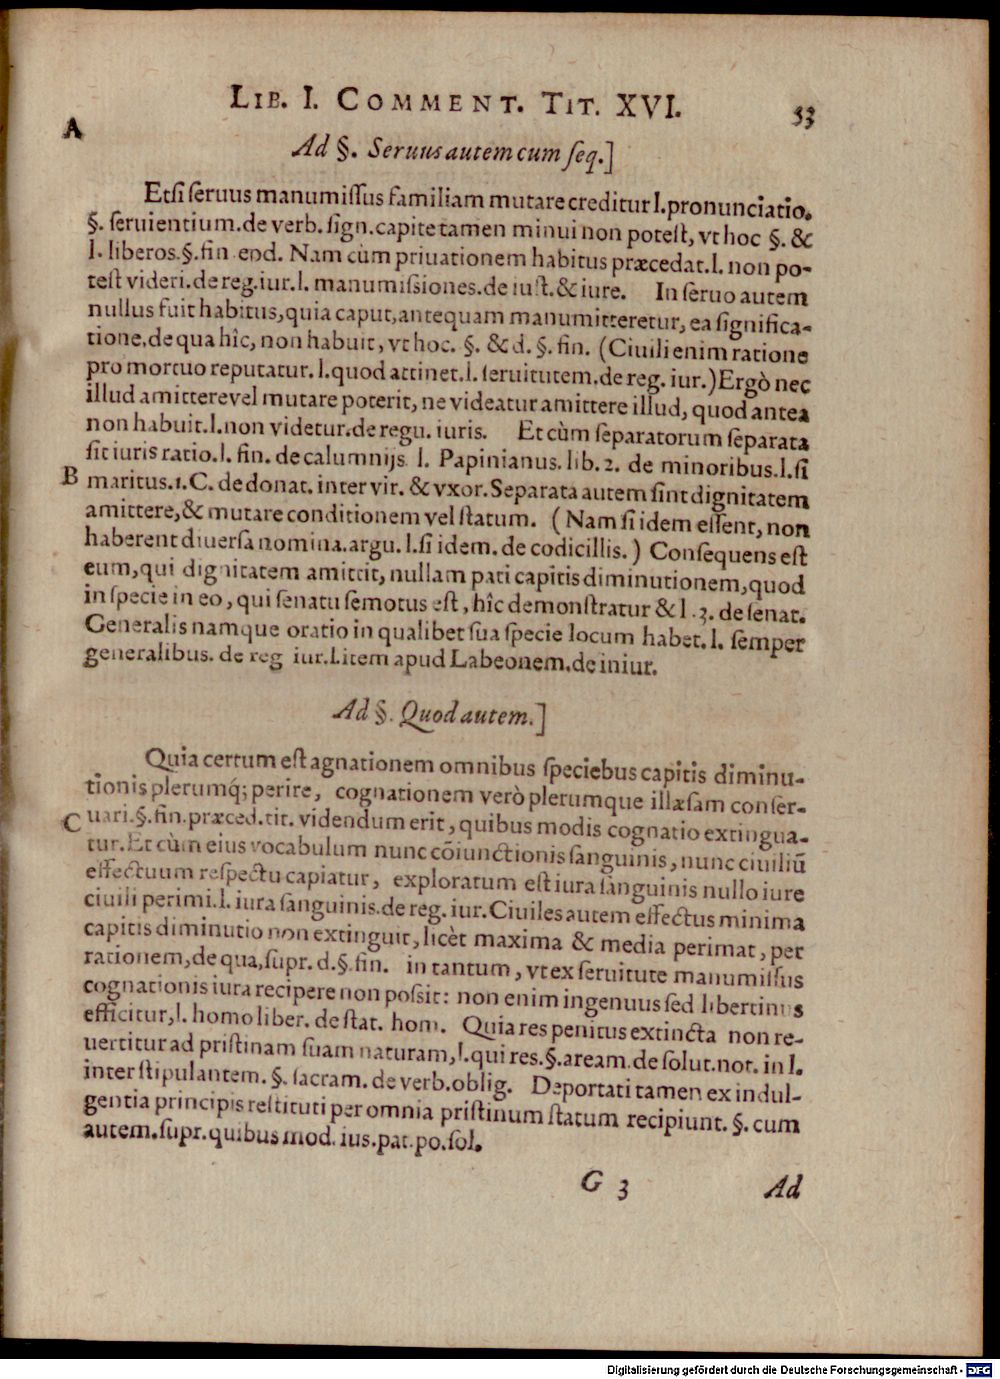 LIB. I. COMMENT. TIT. XVI. 53
A
Ad §. Seruus autem cum ſeq.]
Etſi ſeruus manumiſſus familiam mutare creditur l. pronunciatio.
§. ſeruientium. de verb. ſign. capite tamen minui non poteſt, vt hoc §. &
l. liberos. §. fin eod. Nam cùm priuationem habitus præcedat. l. non po-
teſt videri. de reg. iur. l. manumiſsiones. de iuſt. & iure. In ſeruo autem
nullus fuit habitus, quia caput, antequam manumitteretur, ea ſignifica-
tione, de qua hîc, non habuit, vt hoc. §. & d. §. fin. (Ciuili enim ratione
pro mortuo reputatur. l. quod attinet. l. ſeruitutem. de reg. iur.) Ergò nec
illud amittere vel mutare poterit, ne videatur amittere illud, quod antea
non habuit. l. non videtur. de regu. iuris. Et cùm ſeparatorum ſeparata
ſit iuris ratio. l. fin. de calumnijs l. Papinianus. lib. 2. de minoribus. l. ſi
B maritus. 1. C. de donat. inter vir. & vxor. Separata autem ſint dignitatem
amittere, & mutare conditionem vel ſtatum. (Nam ſi idem eſſent, non
haberent diuerſa nomina. argu. l. ſi idem. de codicillis.) Conſequens eſt
eum, qui dignitatem amittit, nullam pati capitis diminutionem, quod
in ſpecie in eo, qui ſenatu ſemotus eſt, hîc demonſtratur & l. 3. de ſenat.
Generalis namque oratio in qualibet ſua ſpecie locum habet. l. ſemper
generalibus. de reg iur. l. item apud Labeonem. de iniur.
Ad §. Quod autem.]
Quia certum eſt agnationem omnibus ſpeciebus capitis diminu-
tionis plerumq́; perire, cognationem verò plerumque illæſam conſer-
C uari. §. fin. præced. tit. videndum erit, quibus modis cognatio extingua-
tur. Et cùm eius vocabulum nunc cõiunctionis ſanguinis, nunc ciuiliũ
effectuum reſpectu capiatur, exploratum eſt iura ſanguinis nullo iure
ciuili perimi. l. iura ſanguinis. de reg. iur. Ciuiles autem effectus minima
capitis diminutio non extinguit, licèt maxima & media perimat, per
rationem, de qua, ſupr. d. §. fin. in tantum, vt ex ſeruitute manumiſſus
cognationis iura recipere non poſsit: non enim ingenuus ſed libertinus
efficitur, l. homo liber. de ſtat. hom. Quia res penitus extincta non re-
uertitur ad priſtinam ſuam naturam, l. qui res. §. aream. de ſolut. not. in l.
inter ſtipulantem. §. ſacram. de verb. oblig. Deportati tamen ex indul-
gentia principis reſtituti per omnia priſtinum ſtatum recipiunt. §. cum
autem. ſupr. quibus mod. ius. pat. po. ſol.
G 3 Ad
Digitalisierung gefördert durch die Deutsche Forschungsgemeinschaft - DFG